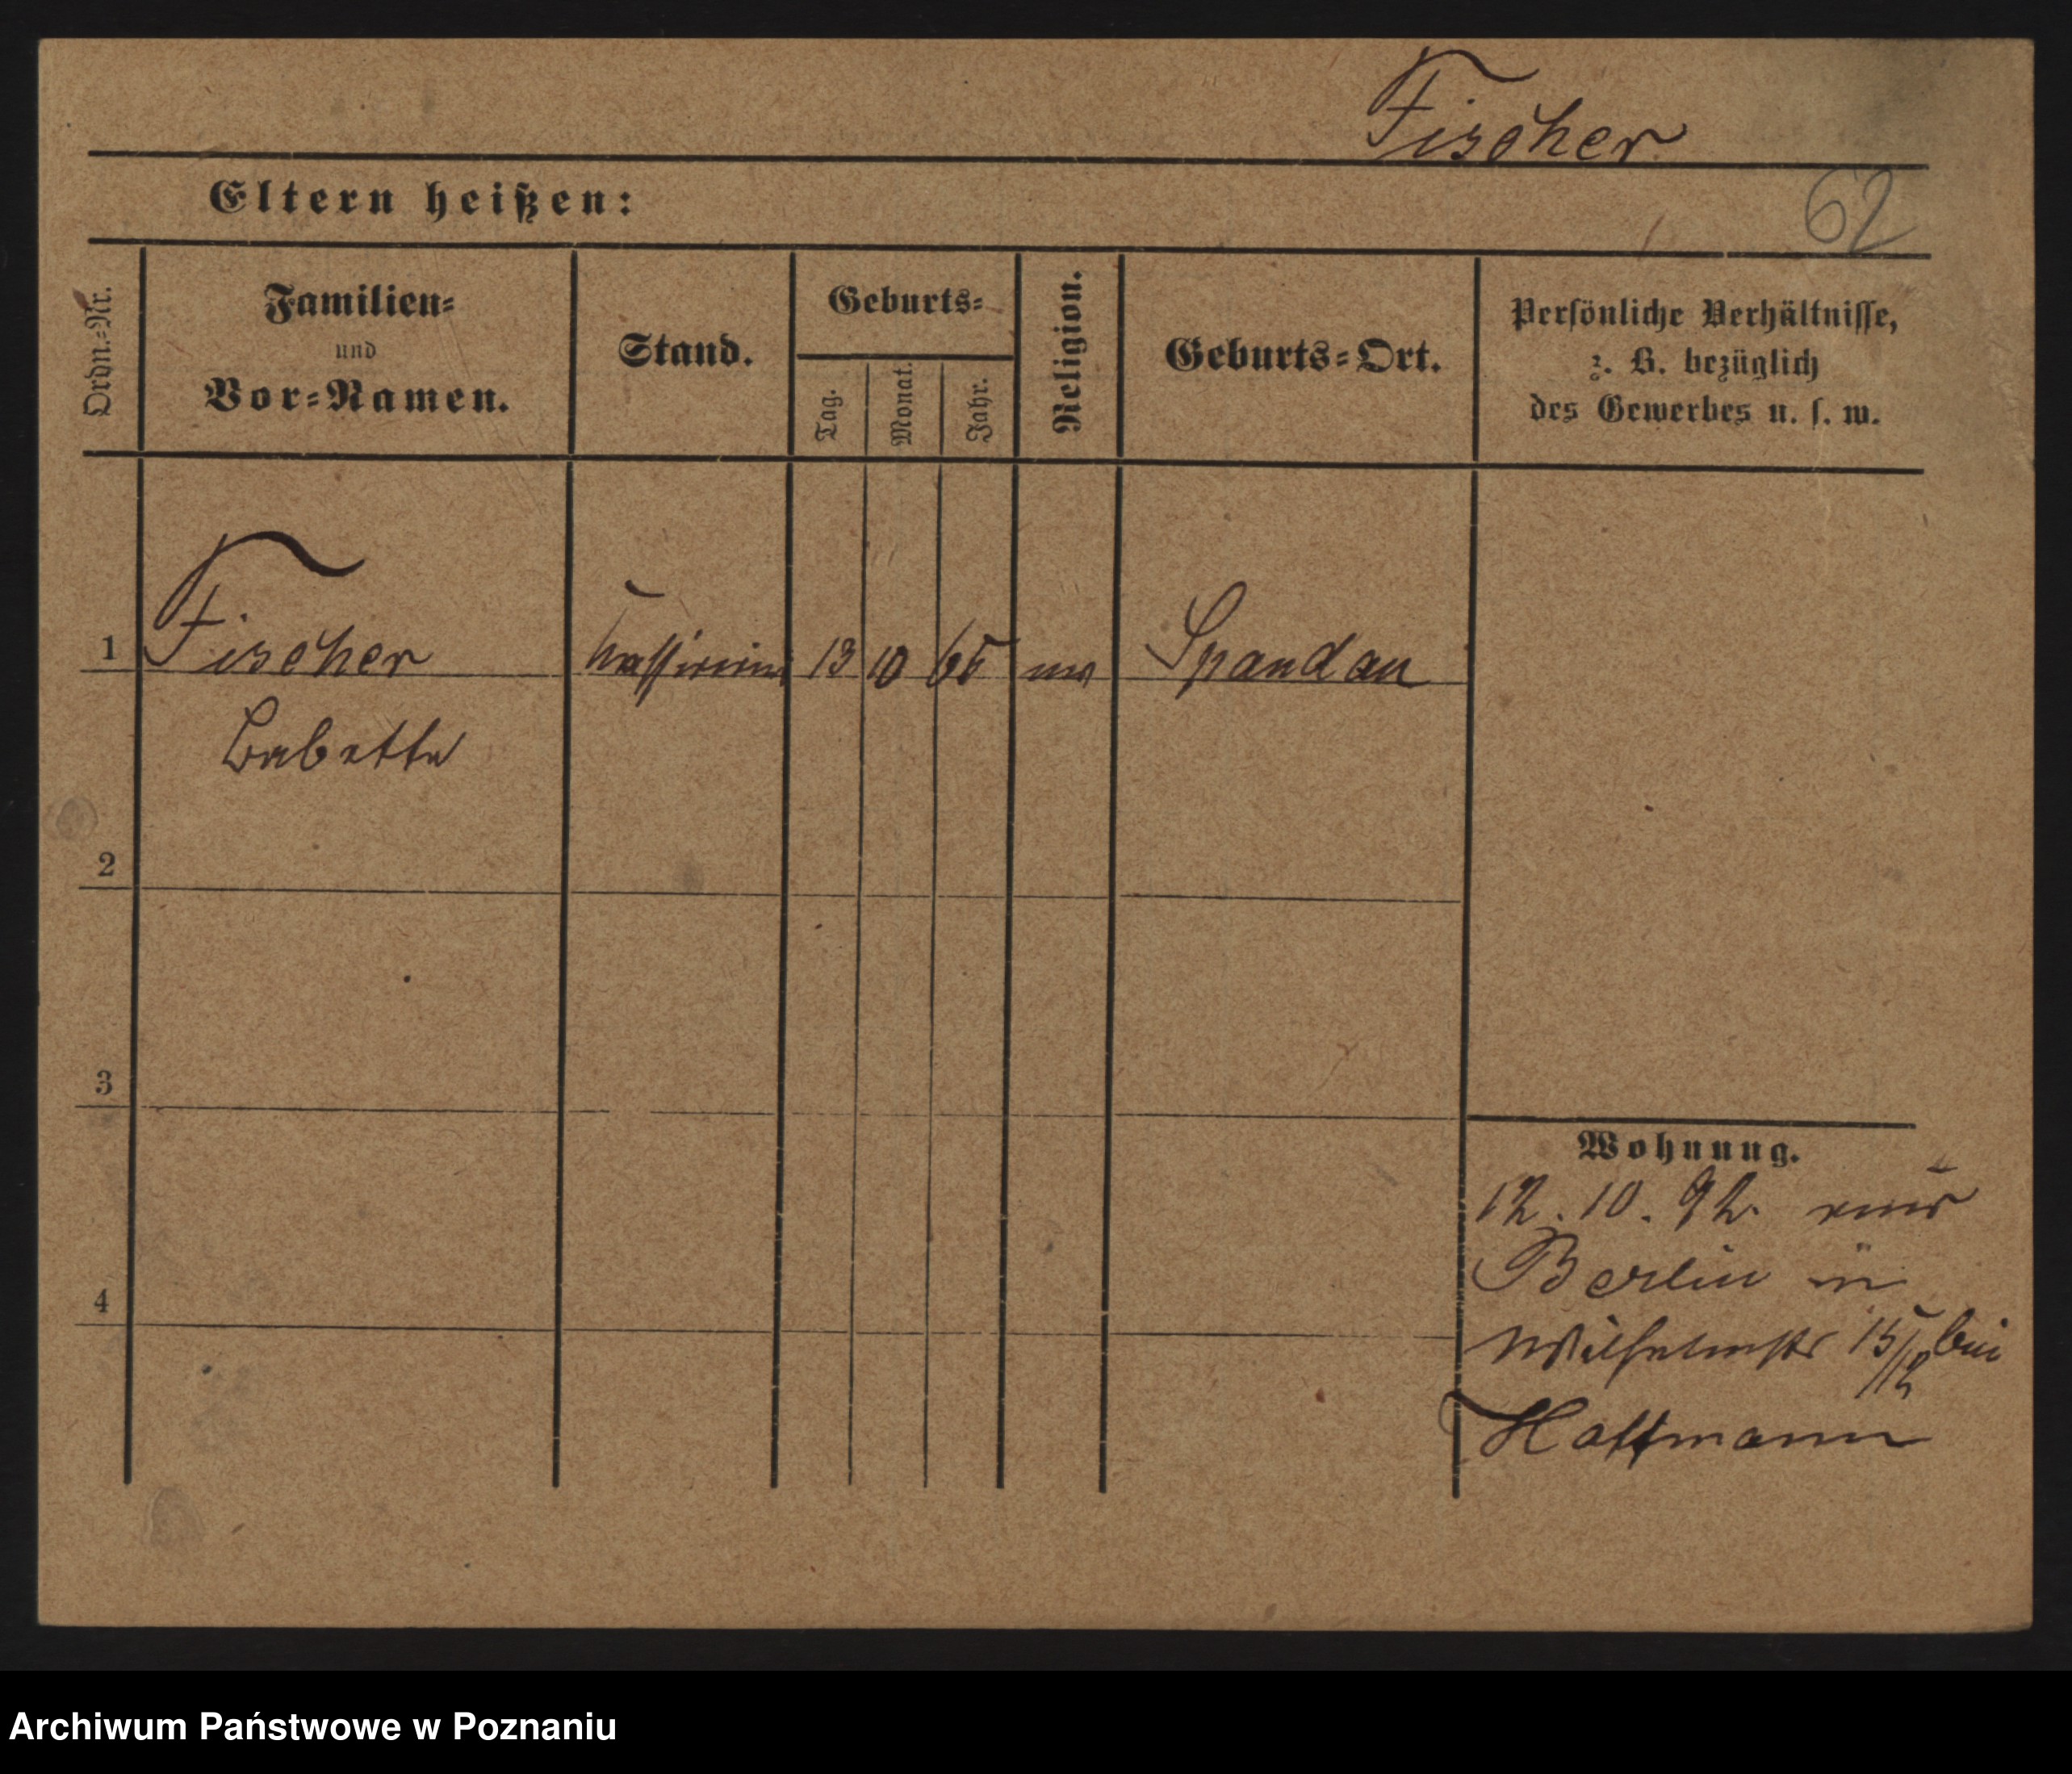 Fischer
Eltern heißen:
62
Ordn.=Nr.
Familien=
und
Vor=Namen.
Stand.
Geburts=
Tag.
Monat.
Jahr.
Religion.
Geburts=Ort.
Persönliche Verhältnisse,
z. B. bezüglich
des Gewerbes u. s. w.
1 Fischer 13 10 65 Spandau
Babette
2
3
4
Wohnung.
12. 10. 92.
Berlin in
Wilhelmstr 15/12 bei
Hoffmann
Archiwum Państwowe w Poznaniu